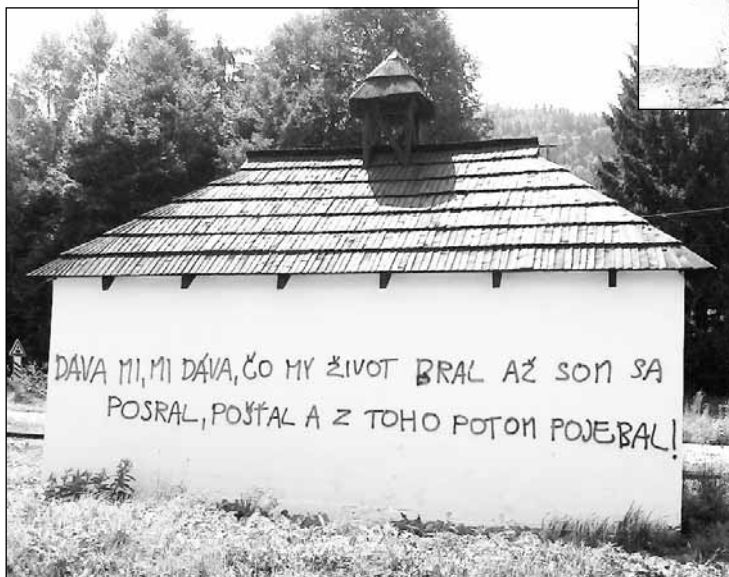 DÁVA MI, MI DÁVA, ČO MY ŽIVOT BRAL AŽ SOM SA
POSRAL, POŠŤAL A Z TOHO POTOM POJEBAL!